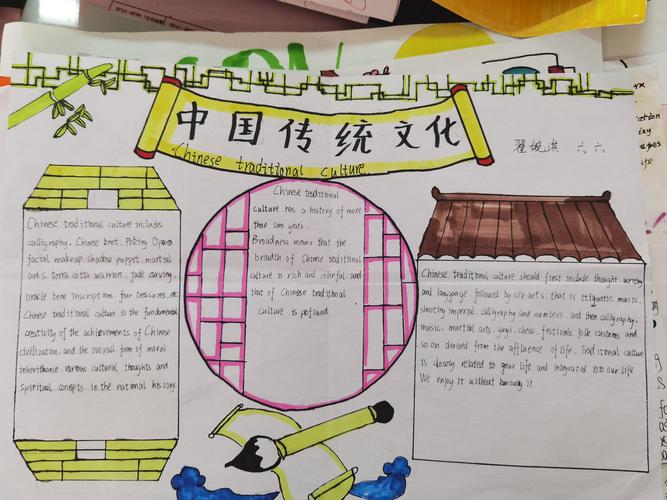 中国传统文化
Chinese traditional culture.
翟婉淇 六六
Chinese traditional culture includes
calligraphy. Chinese knot. Peking Opera
facial makeup. shadow puppet. martial
arts. terra cotta warriors. jade carving.
oracle bone inscriptions. four treasures. etc
Chinese traditional culture is the fundamental
creativity of the achievements of Chinese
civilization. and the overall form of moral
inheritance. various cultural thoughts and
spiritual in the national history.
Chinese traditional
culture has a history of more
than years.
Broadness means that the
breadth of Chinese traditional
culture is rich and colorful. and
that of Chinese traditional
culture is profound
Chinese traditional culture should first include thought. writing
and language followed by six arts. that is etiquette. music.
shooting imperial. calligraphy and numbers. and then calligraphy.
music. martial arts. chess. festivals. folk customs and
so on derived from the affluence of life. Traditional culture
is closely related to your life and integrated into our life
We enjoy it without it